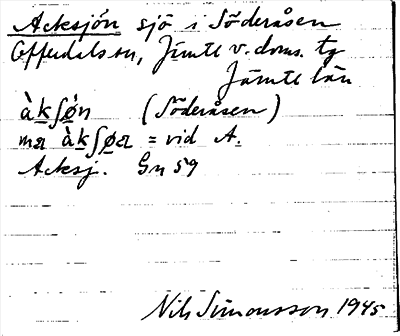 Acksjön sjö i Söderåsen
Offerdals sn, Jämtl v. doms. tg
Jämtl län
àkʃø̀n (Söderåsen)
mæ àkʃøæ = vid A.
Acksj. Gn 59
Nils Simonsson 1945